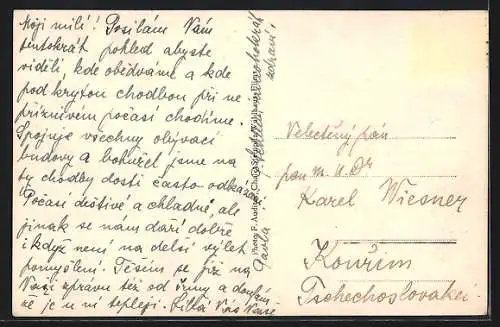 Moji milí! Posílám Vám
tentokrát pohled abyste
viděli, kde obědváme a kde
pod krytou chodbou při ne
příznivém počasí chodíme.
Spojuje všechny obývací
budovy a bohužel jsme na
ty chodby dosti často odkázáni.
Počasí deštivé a chladné, ale
jinak se nám daří dobře
i když není na delší výlet
pomyšlení. Těším se již na
Vaši zprávu též od Irmy a doufám
že je u ní tepleji. Líbá Vás Vaše
mnohokrát
zdraví!
Velectěný pán
pan M. U. Dr
Karel Wiesner
Kouřim
Tschechoslovakei